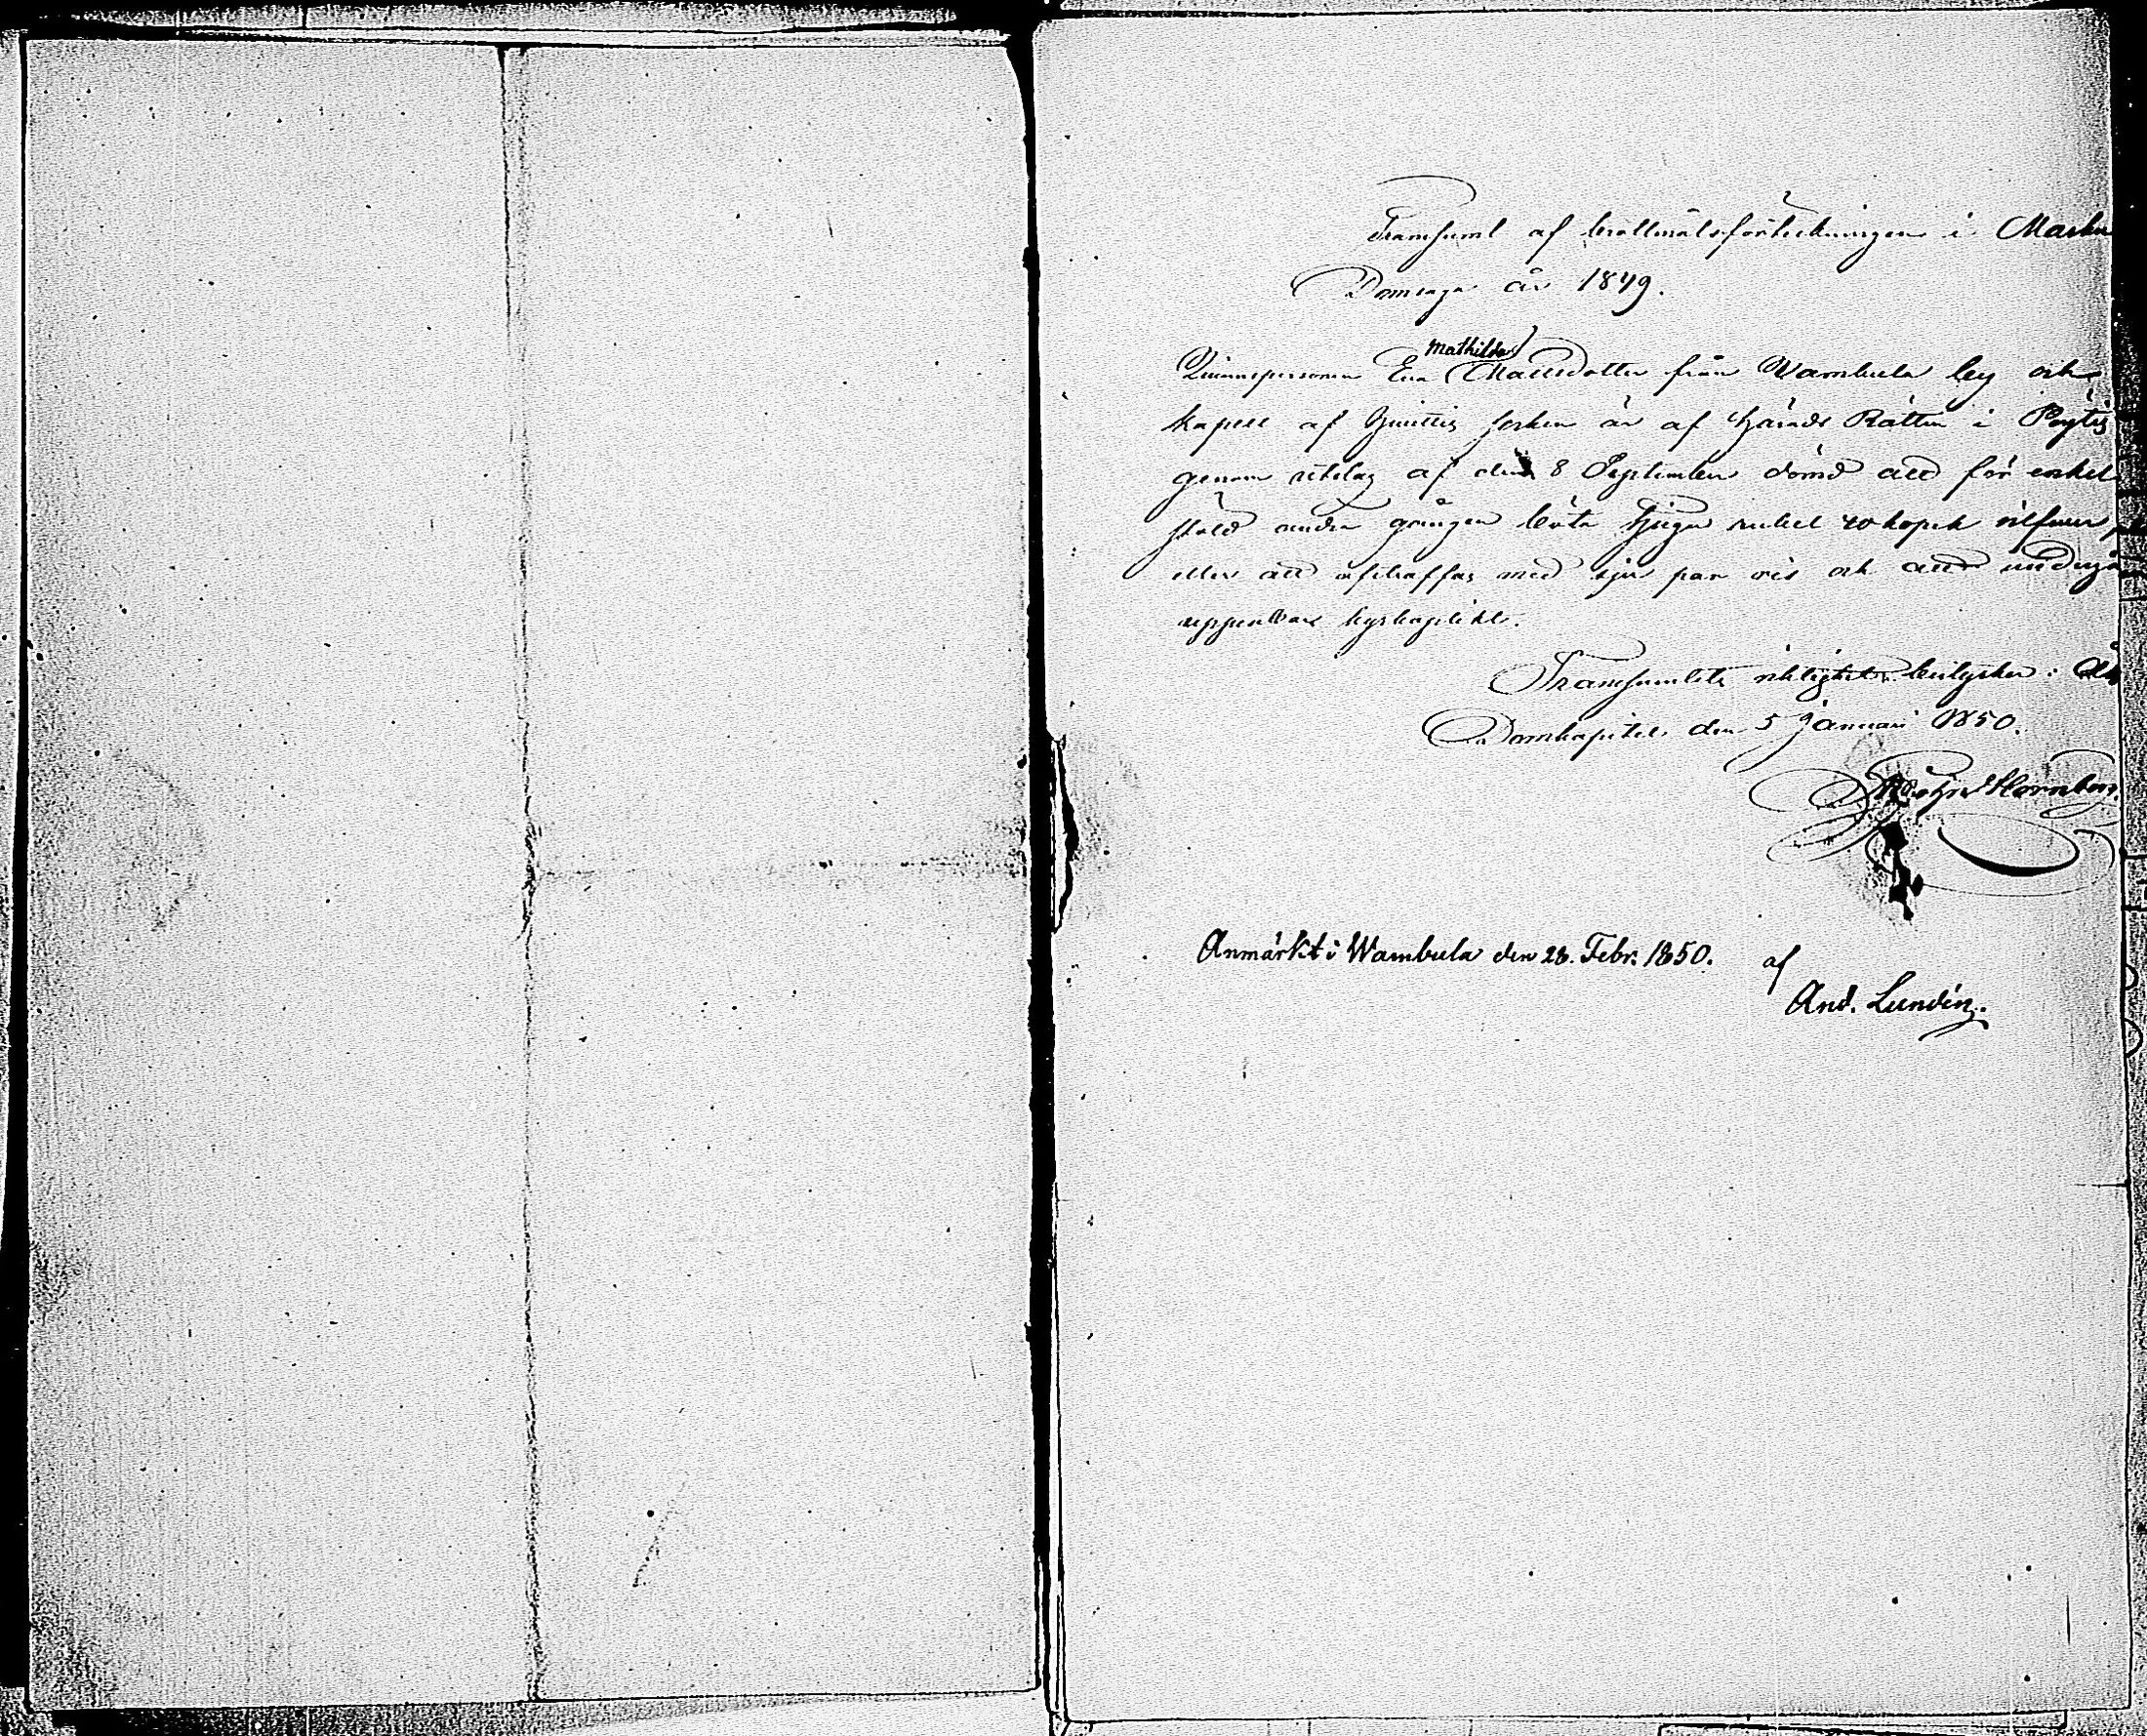 Transsumt af brottmålsförteckningen i Masku
Domsaga år 1849.
Mathilda
Qvinnspersonen Eva Mattsdotter från Wambula by och
kapell af Hvittis socken är af Härads Rätten i Pöytis
genom utslag af den 8 September dömd att för enkel
hold andra gången böta sju rubel 20 kopek silfver,
eller att afstraffas med sju par ris och att undergå
uppenbar kyrkoplikt.
Transsumtets riktighet betyder: Åbo
Domkapitel den 5 Januari 1850.
Hornborg.
Anmärkt i Wambula den 28. Febr: 1850. af
And. Lundén.